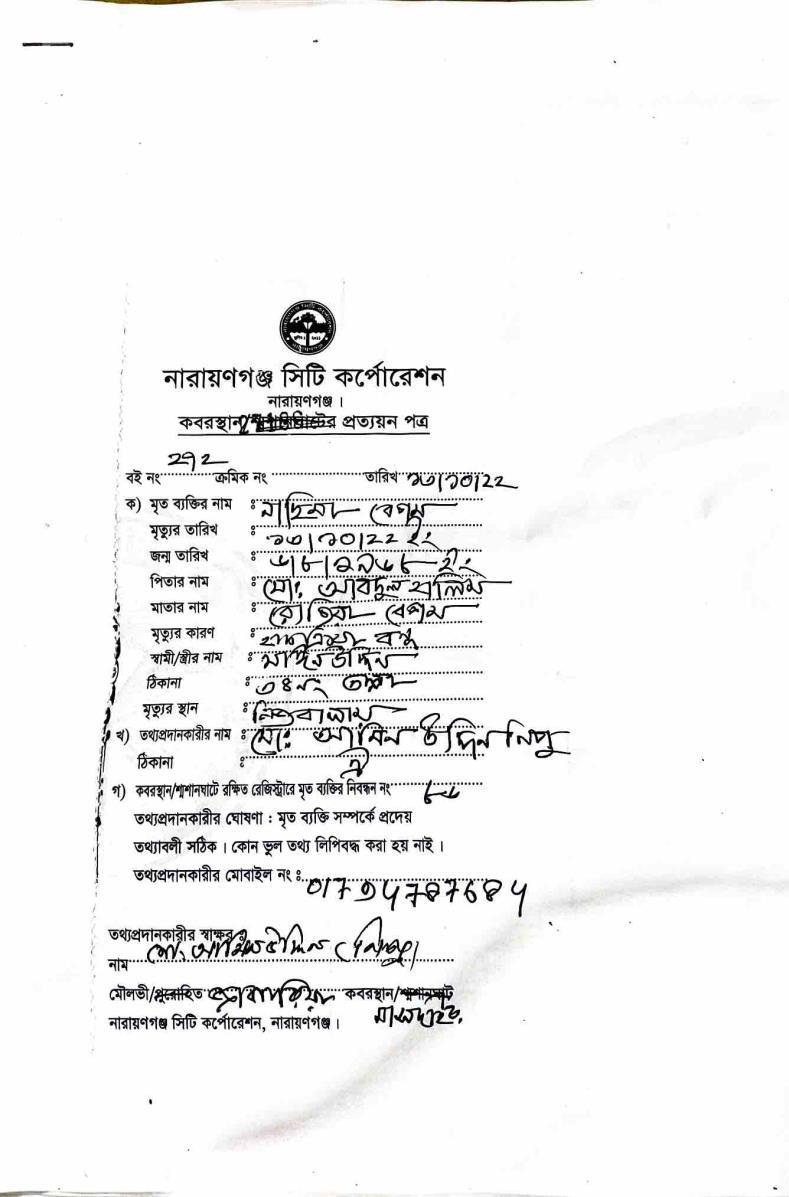 নারায়ণগঞ্জ সিটি কর্পোরেশন
নারায়ণগঞ্জ।
কবরস্থান/শ্মশানঘাটের প্রত্যয়ন পত্র
বই নং 292 ক্রমিক নং তারিখ ১৩/১০/২২
ক) মৃত ব্যক্তির নাম : নাছিমা বেগম
মৃত্যুর তারিখ : ১৩/১০/২২ ইং
জন্ম তারিখ : ইং
পিতার নাম : মো: আবদুল হালিম
মাতার নাম : বেগম
মৃত্যুর কারণ : বন্ধ
স্বামী/স্ত্রীর নাম : মাঈনউদ্দিন
ঠিকানা : ৩৪নং তল্লা
মৃত্যুর স্থান :
খ) তথ্যপ্রদানকারীর নাম : মো: আমিন উদ্দিন নিপু
ঠিকানা : ঐ
গ) কবরস্থান/শ্মশানঘাটে রক্ষিত রেজিস্ট্রারে মৃত ব্যক্তির নিবন্ধন নং
তথ্যপ্রদানকারীর ঘোষণা : মৃত ব্যক্তি সম্পর্কে প্রদেয়
তথ্যাবলী সঠিক। কোন ভুল তথ্য লিপিবদ্ধ করা হয় নাই।
তথ্যপ্রদানকারীর মোবাইল নং :
তথ্যপ্রদানকারীর স্বাক্ষর :
নাম মো: আমিনউদ্দিন (নিপু)
মৌলভী/পুরোহিত কবরস্থান/শ্মশানঘাট
নারায়ণগঞ্জ সিটি কর্পোরেশন, নারায়ণগঞ্জ। মাসদাইর